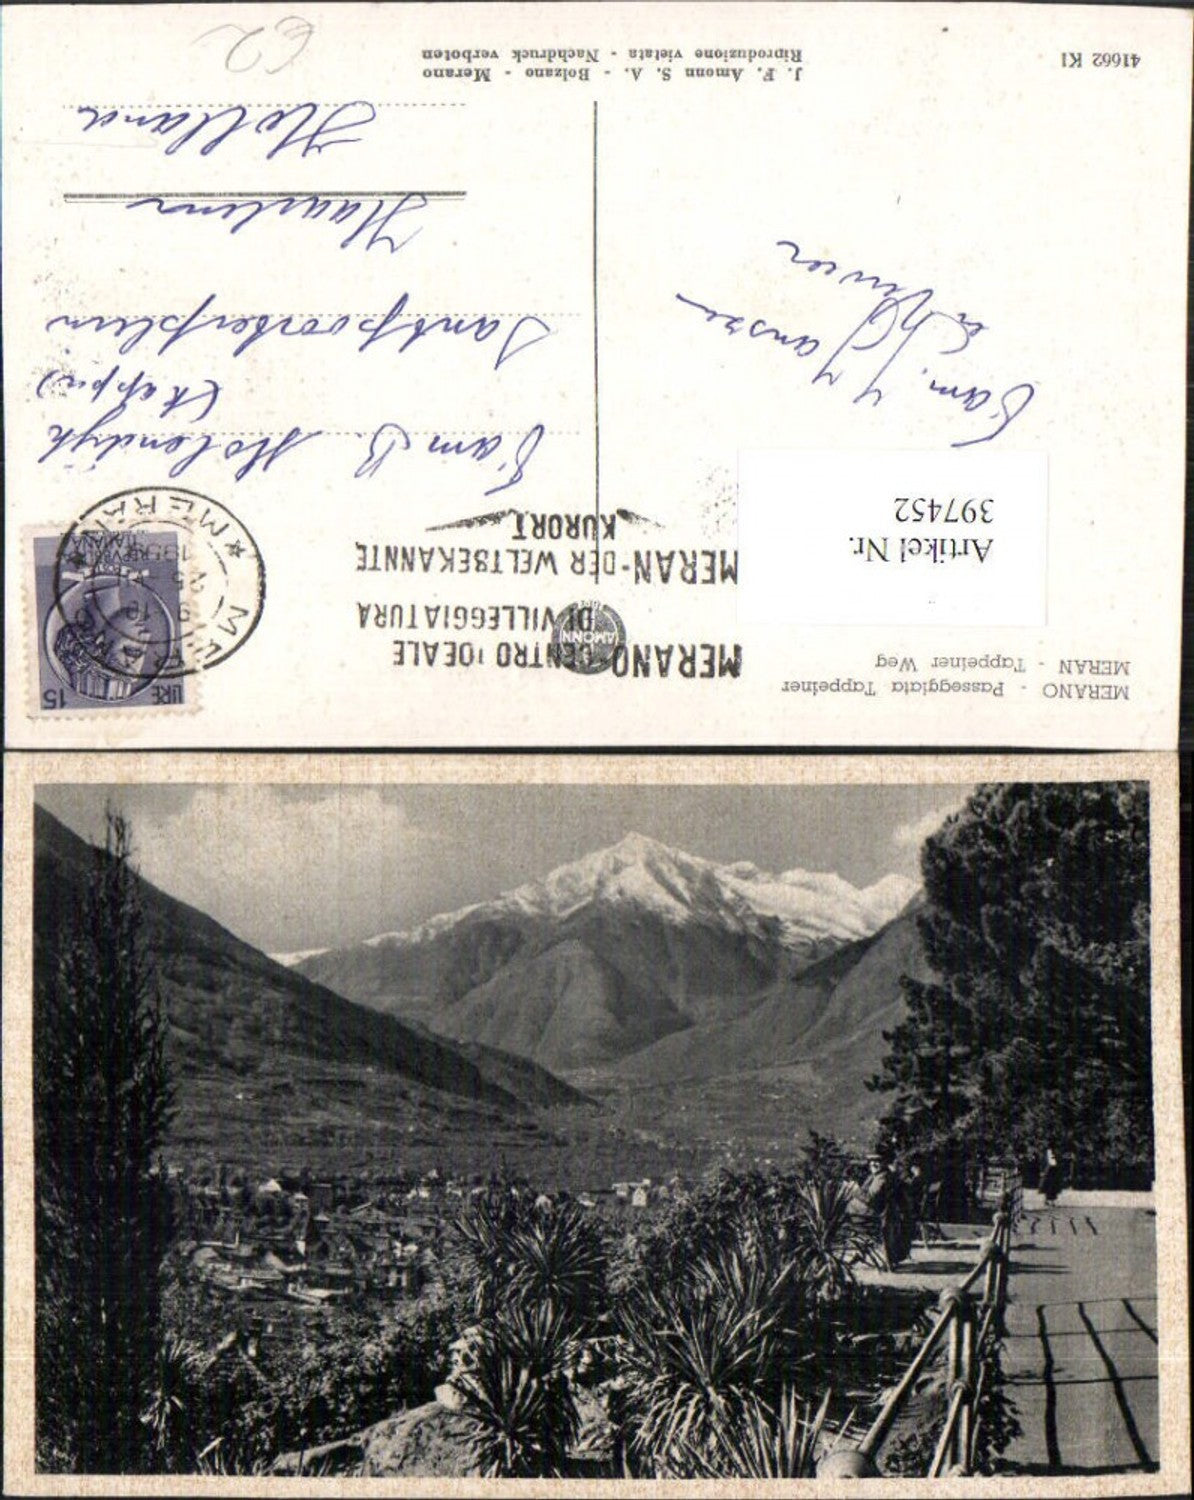 MERANO - Passeggiata Tappeiner
MERAN - Tappeiner Weg
Artikel Nr.
397452
Fam. Y Jansze
Fam. B. Molendijk
Santpoorterplein
Haarlem
Holland
MERANO-CENTRO IDEALE
DI VILLEGGIATURA
MERAN-DER WELTBEKANNTE
KURORT
AMONN
MERANO
MERAN
25
LIRE 15
41662 KI
J. F. Amonn S. A. - Bolzano - Merano
Riproduzione vietata - Nachdruck verboten